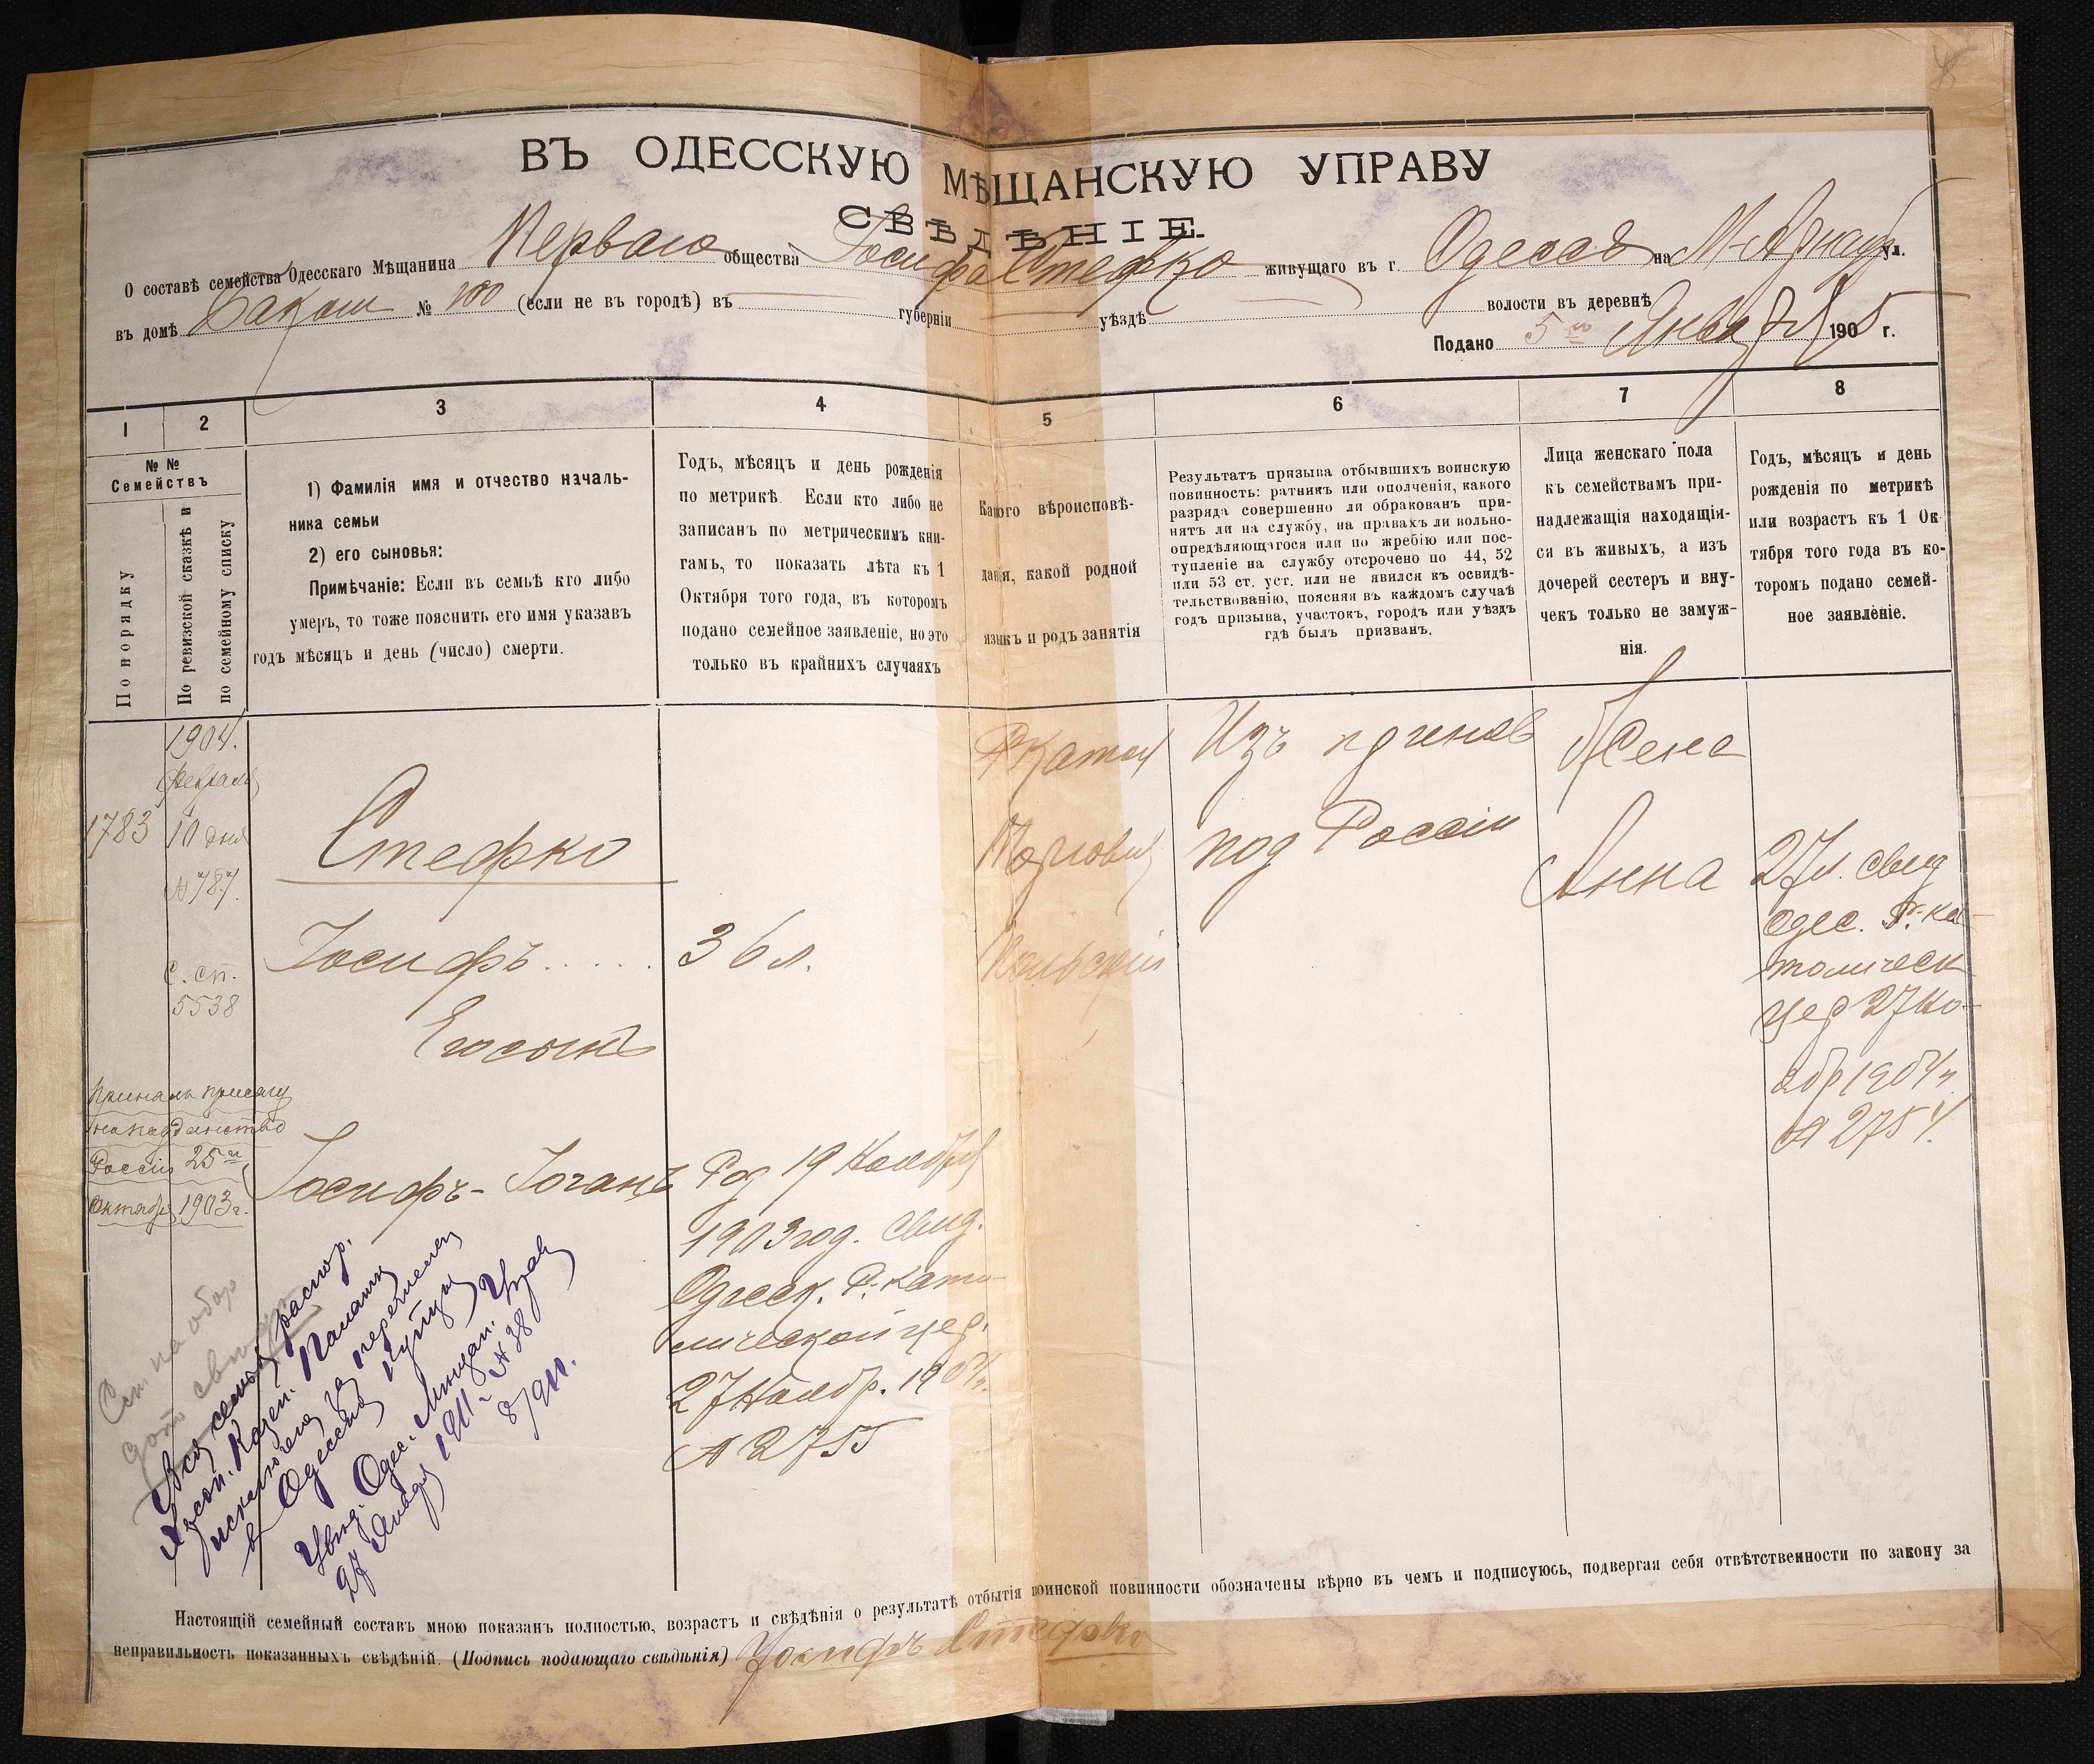 ВЪ ОДЕССКУЮ МѢЩАНСКУЮ УПРАВУ
СВѢДѢНІЕ.
О составѣ семейства Одесскаго Мѣщанина Перваго общества Іосифа Стефко живущаго въ г. Одессѣ на М-Арнаут ул.
въ домѣ № 100 (если не въ городѣ) въ губерніи уѣздѣ волости въ деревнѣ
Подано 5го Января 1905 г.
1 2 3 4 5 6 7 8
№ №
Семействъ
По порядку
По ревизской сказкѣ и
по семейному списку
1) Фамилія имя и отчество началь-
ника семьи
2) его сыновья:
Примѣчаніе: Если въ семьѣ кто либо
умеръ, то тоже пояснить его имя указавъ
годъ мѣсяцъ и день (число) смерти.
Годъ, мѣсяцъ и день рожденія
по метрикѣ. Если кто либо не
записанъ по метрическимъ кни-
гамъ, то показать лѣта къ 1
Октября того года, въ которомъ
подано семейное заявленіе, но это
только въ крайнихъ случаяхъ
Какого вѣроисповѣ-
данія, какой родной
языкъ и родъ занятія
Результатъ призыва отбывшихъ воинскую
повинность: ратникъ или ополченія, какого
разряда совершенно ли обракованъ при-
нятъ ли на службу, на правахъ ли вольно-
опредѣляющагося или по жребію или пос-
тупленіе на службу отсрочено по 44, 52
или 53 ст. уст. или не явился къ освидѣ-
тельствованію, поясняя въ каждомъ случаѣ
годъ призыва, участокъ, городъ или уѣздъ
гдѣ былъ призванъ.
Лица женскаго пола
къ семействамъ при-
надлежащія находящія-
ся въ живыхъ, а изъ
дочерей сестеръ и вну-
чекъ только не замуж-
нія.
Годъ, мѣсяцъ и день
рожденія по метрикѣ
или возрастъ къ 1 Ок-
тября того года въ ко-
торомъ подано семей-
ное заявленіе.
1783
1904.
Февраля
10 дня
№ 787.
С. сп.
5538
Принялъ присягу
на подданство
Россіи 25го
Октября 1903 г.
Стефко
Іосифъ . . . . .
Его сынъ
Іосифъ-Іоганъ
36 л.
Род 19 Ноября
1903 год. свид.
Одесск. Р.-като-
лической цер.
27 Ноябр. 1904 г.
№ 2755
Р Катол
Торговля
Польскій
Изъ приняв
под Россіи
Жена
Анна
27 л. свид
Одес. Р.-ка-
толическ
цер 27 Но-
ябр 1904 г.
№ 2754.
Вся семья распор.
Херсон. Казен. Палаты
исключена за перечислен
в Одесскія купцы
Увед. Одес. Мѣщан. Управ
27 Января 1911 г. № 38
8/911.
Настоящій семейный составъ мною показанъ полностью, возрастъ и свѣдѣнія о результатѣ отбытія воинской повинности обозначены вѣрно въ чемъ и подписуюсь, подвергая себя отвѣтственности по закону за
неправильность показанныхъ свѣдѣній. (Подпись подающаго свѣдѣнія) Іосифъ Стефко